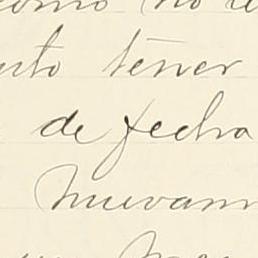 como no
tener
de fecha
nuevam